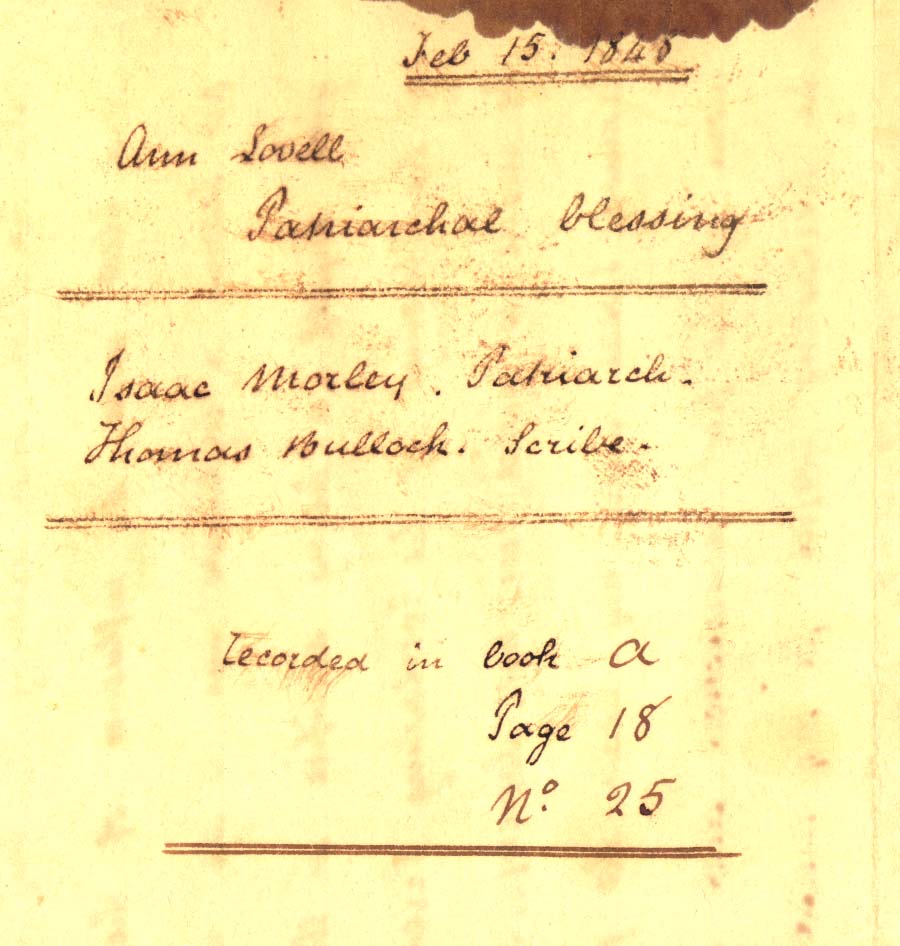 Feb 15. 1848
Ann Lovell
Patriarchal blessing
Isaac Morley. Patriarch.
Thomas Bullock. Scribe.
recorded in book A
Page 18
No. 25